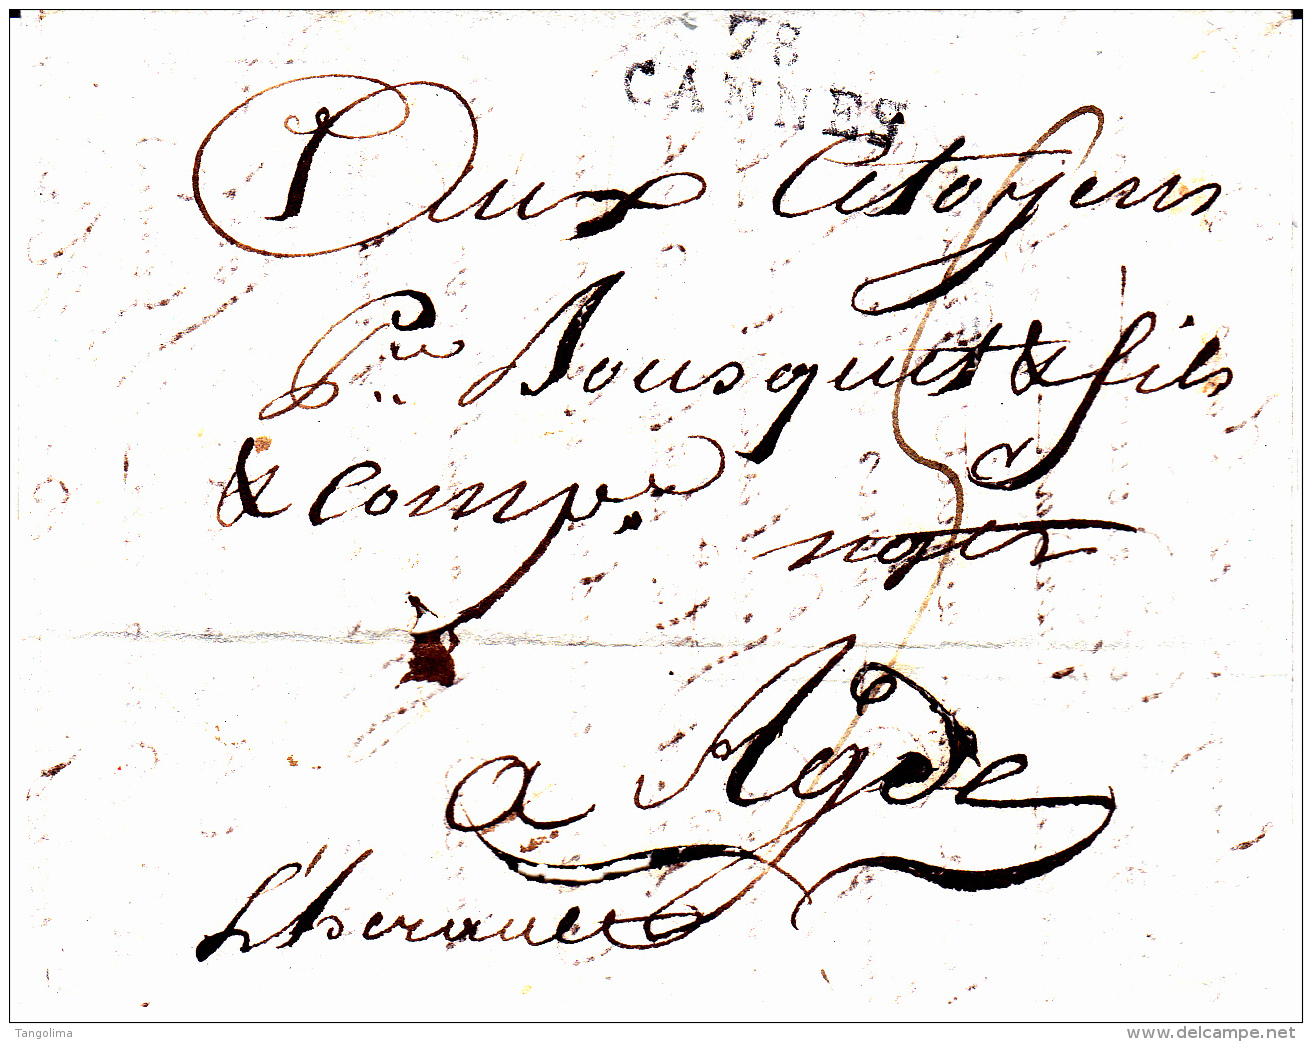 78
CANNES
Aux Citoyens
Pre. Bousquet & fils
& compe.
negts
a Agde
L'herault
Tangolima
www.delcampe.net